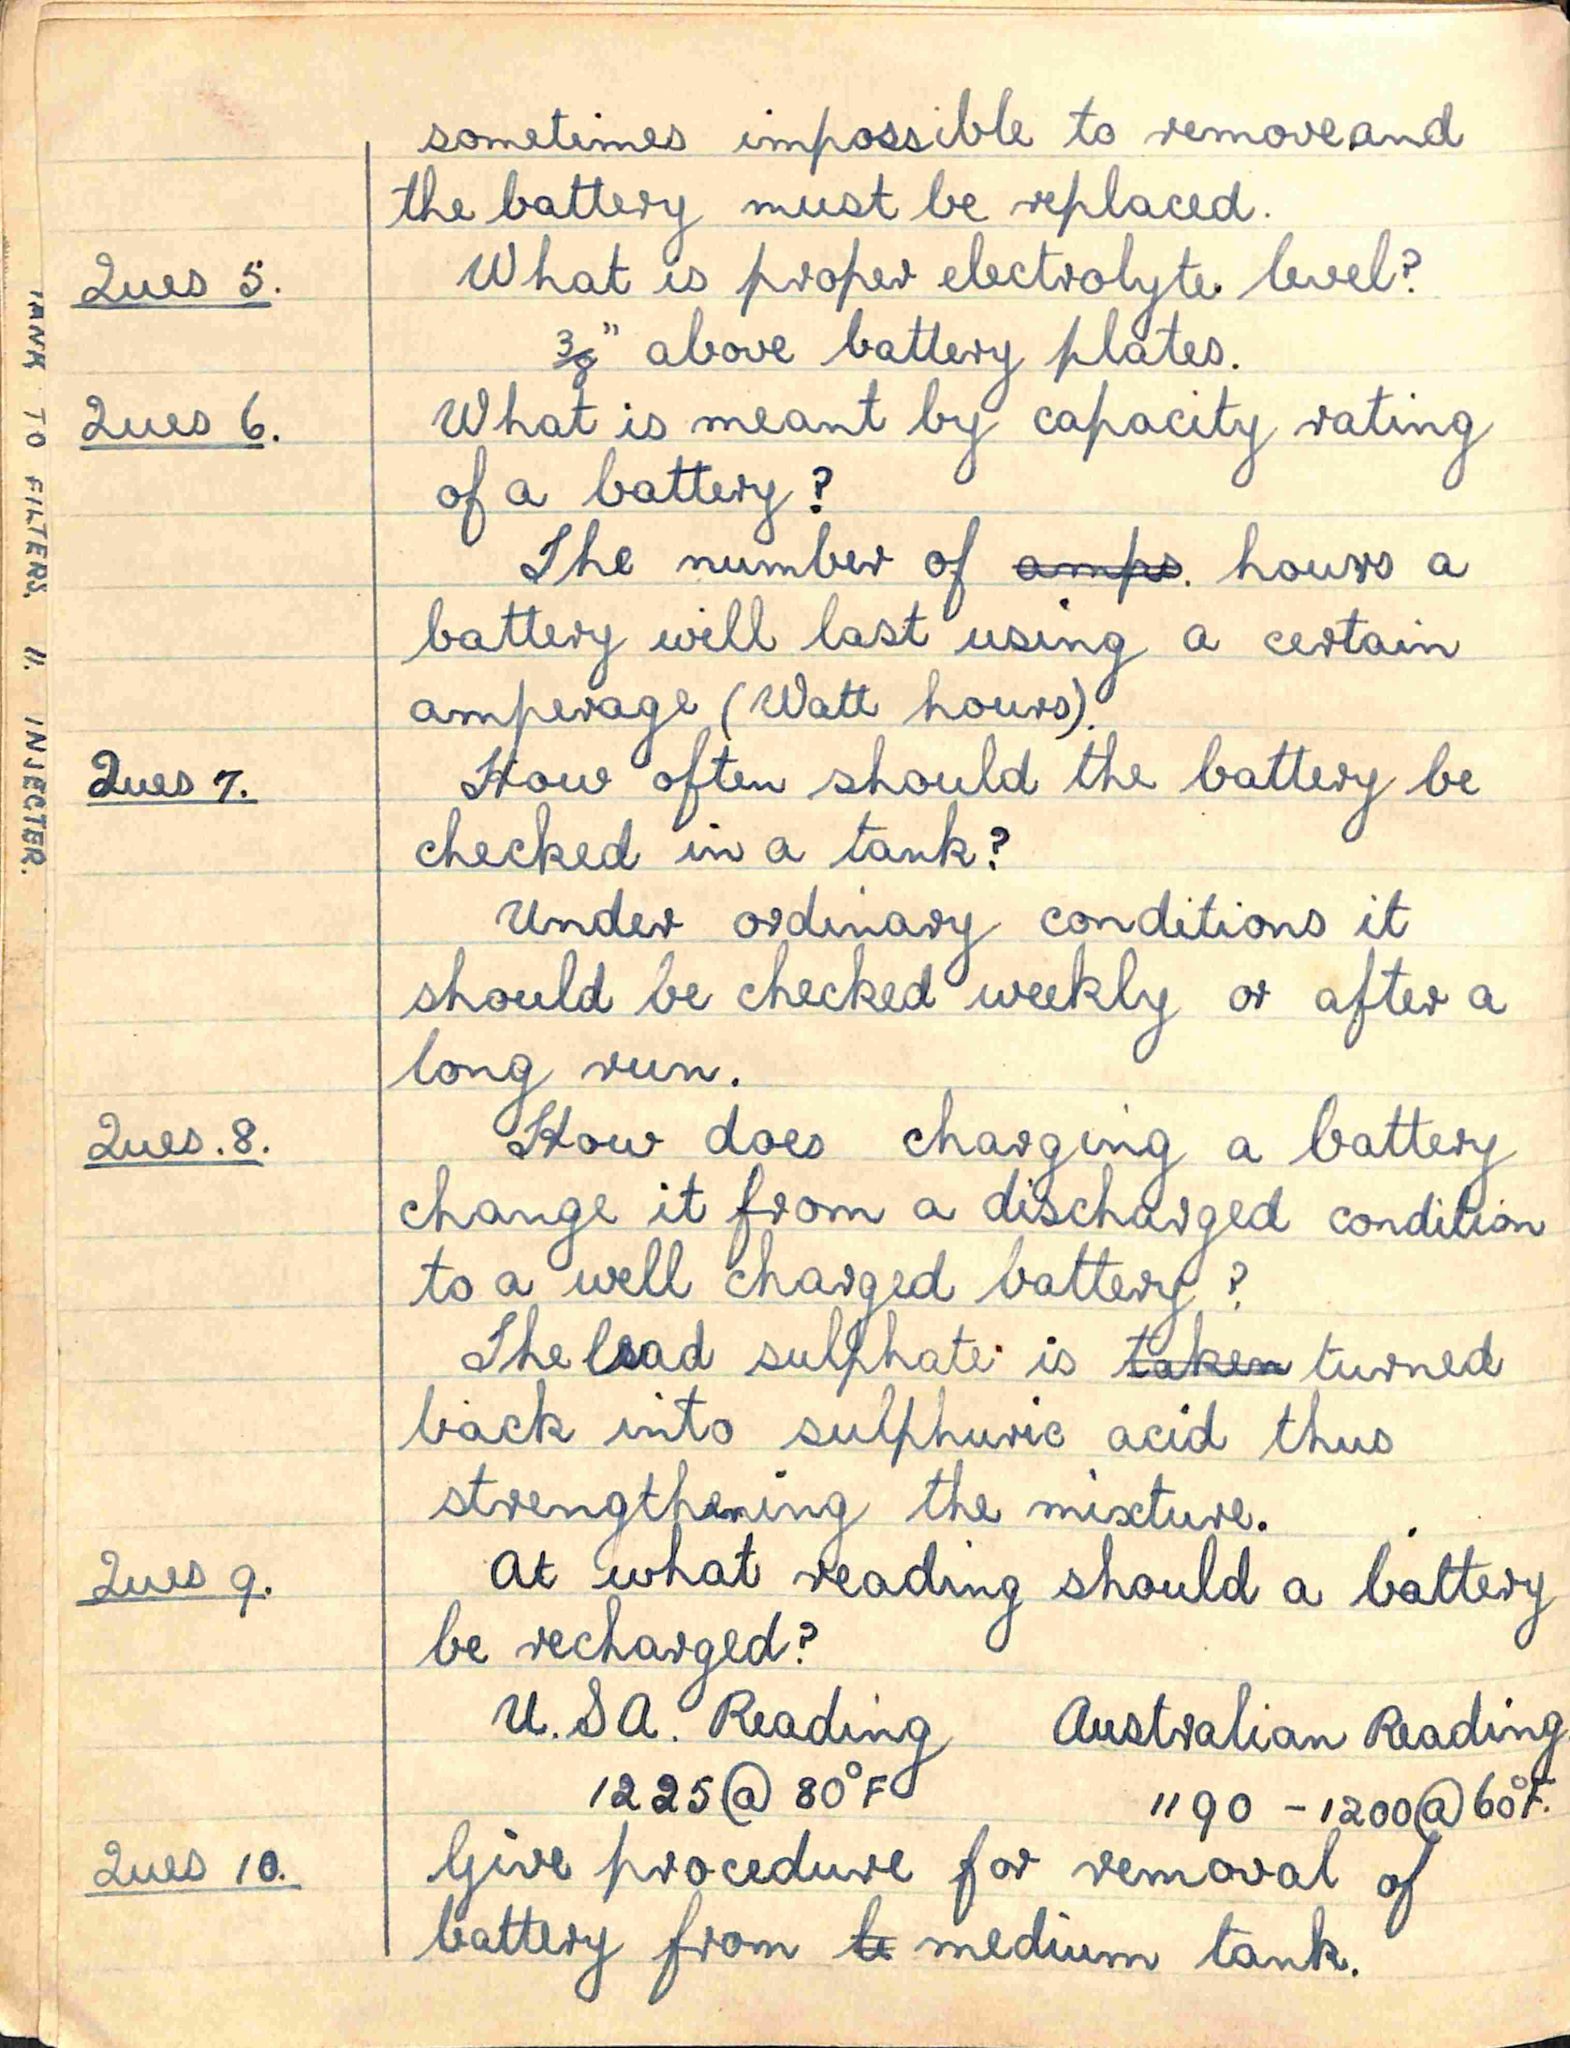 sometimes impossible to remove and
the battery must be replaced.
Ques 5. What is proper electrolyte level?
3/8" above battery plates.
Ques 6. What is meant by capacity rating
of a battery?
The number of amps. hours a
battery will last using a certain
amperage (Watt hours).
Ques 7. How often should the battery be
checked in a tank?
Under ordinary conditions it
should be checked weekly or after a
long run.
Ques. 8. How does charging a battery
change it from a discharged condition
to a well charged battery?
The lead sulphate is taken turned
back into sulphuric acid thus
strengthening the mixture.
Ques 9. At what reading should a battery
be recharged?
U.S.A. Reading Australian Reading
1225 @ 80°F 1190 - 1200 @ 60°F.
Ques 10. Give procedure for removal of
battery from medium tank.
TANK TO FILTERS. 11. INJECTER.